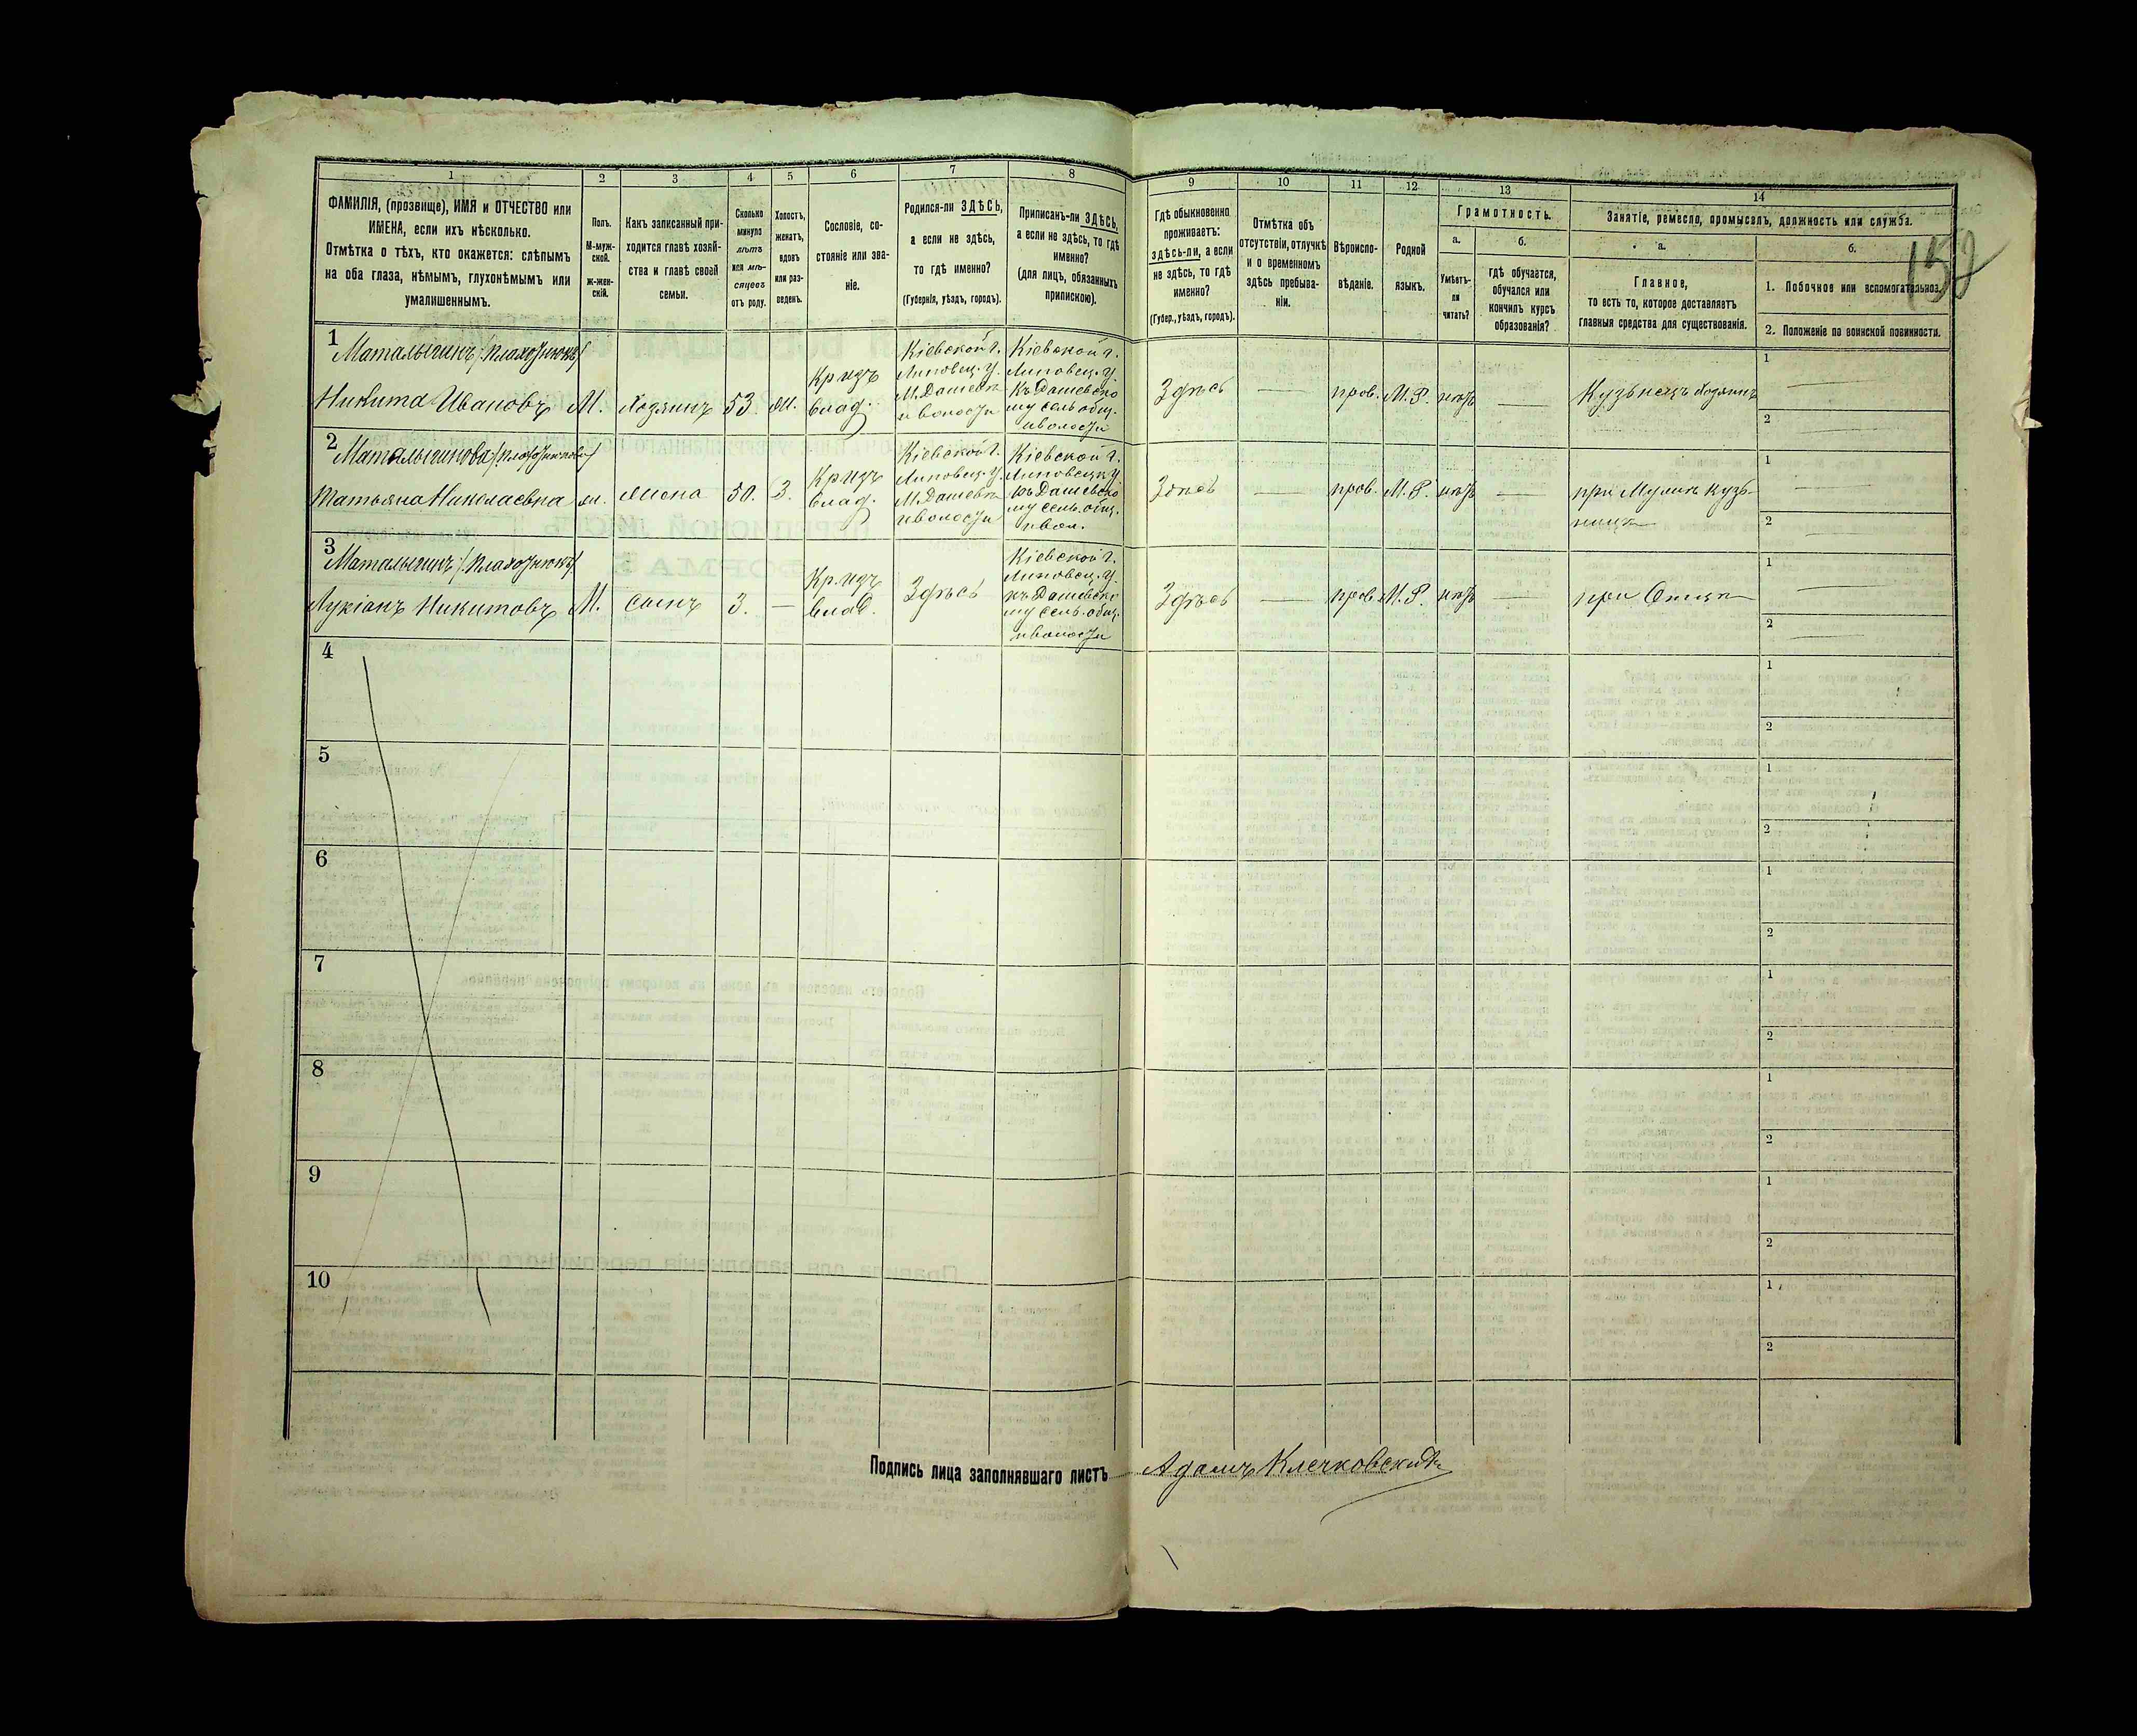 158
1
2
3
4
5
6
7
8
9
10
11
12
13
14
ФАМИЛІЯ, (прозвище), ИМЯ и ОТЧЕСТВО или
ИМЕНА, если ихъ нѣсколько.
Отмѣтка о тѣхъ, кто окажется: слѣпымъ
на оба глаза, нѣмымъ, глухонѣмымъ или
умалишеннымъ.
Полъ.
М-муж-
ской.
Ж-жен-
скій.
Какъ записанный при-
ходится главѣ хозяй-
ства и главѣ своей
семьи.
Сколько
минуло
лѣтъ
или мѣ-
сяцевъ
отъ роду.
Холостъ,
женатъ,
вдовъ
или раз-
веденъ.
Сословіе, со-
стояніе или зва-
ніе.
Родился-ли ЗДѢСЬ,
а если не здѣсь,
то гдѣ именно?
(Губернія, уѣздъ, городъ).
Приписанъ-ли ЗДѢСЬ,
а если не здѣсь, то гдѣ
именно?
(для лицъ, обязанныхъ
припискою).
Гдѣ обыкновенно
проживаетъ:
здѣсь-ли, а если
не здѣсь, то гдѣ
именно?
(Губер., уѣздъ, городъ).
Отмѣтка объ
отсутствіи, отлучкѣ
и о временномъ
здѣсь пребыва-
ніи.
Вѣроиспо-
вѣданіе.
Родной
языкъ.
Грамотность.
а.
Умѣетъ-
ли
читать?
б.
гдѣ обучается,
обучался или
кончилъ курсъ
образованія?
Занятіе, ремесло, промыселъ, должность или служба.
а.
Главное,
то есть то, которое доставляетъ
главныя средства для существованія.
б.
1. Побочное или вспомогательное.
2. Положеніе по воинской повинности.
1
Маталыгинъ (Плахотнюкъ)
Никита Ивановъ
М.
Хозяинъ
53.
Ж.
Кр изъ
влад.
Кіевской г.
Липовец. у.
М. Дашевъ
и волости
Кіевской г.
Липовец. у.
къ Дашевско
му сель общ.
и волости
Здѣсь
—
прав.
М. Р.
нѣтъ
—
Кузнецъ хозяинъ
1
2
2
Маталыгинова (Плахотнюкова)
Татьяна Николаевна
ж.
Жена
50.
З.
Кр изъ
влад.
Кіевской г.
Липовец. у.
М. Дашевъ
и волости
Кіевской г.
Липовецк у
къ Дашевско
му сель. общ.
и вол.
Здѣсь
—
прав.
М. Р.
нѣтъ
—
при Мужѣ кузь-
нецѣ
1
2
3
Маталыгинъ (Плахотнюкъ)
Лукіанъ Никитовъ
М.
сынъ
3.
—
Кр изъ
влад.
Здѣсь
Кіевской г.
Липовец. у.
къ Дашевско
му сель. общ.
и волости
Здѣсь
—
прав.
М. Р.
нѣтъ
—
при Отцѣ
1
2
4
1
2
5
1
2
6
1
2
7
1
2
8
1
2
9
1
2
10
1
2
Подпись лица заполнявшаго листъ Адамъ Клечковскій